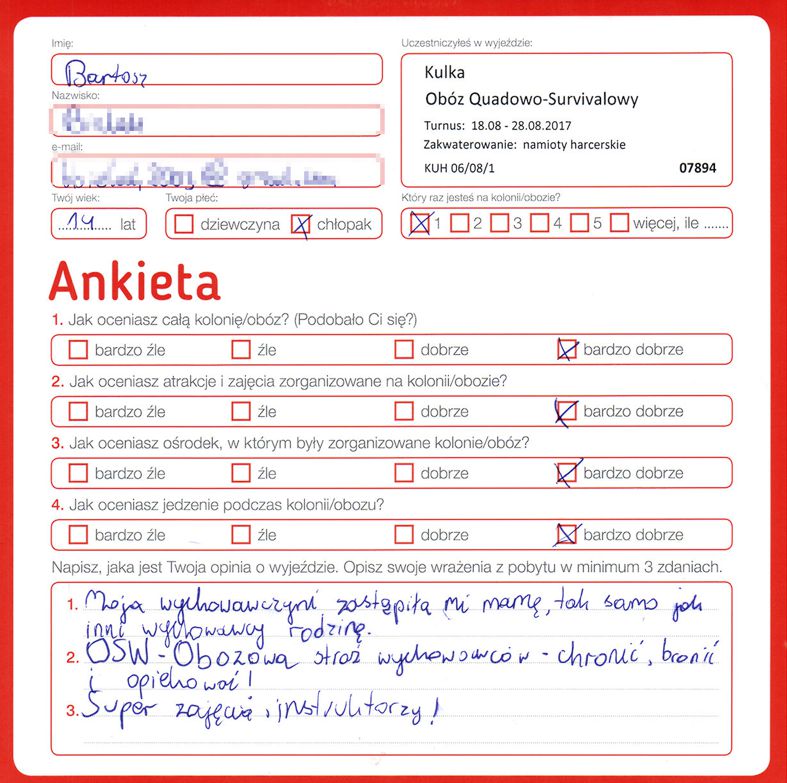 Imię:
Bartosz
Nazwisko:
e-mail:
Twój wiek:
14 lat
Twoja płeć:
dziewczyna chłopak
Uczestniczyłeś w wyjeździe:
Kulka
Obóz Quadowo-Survivalowy
Turnus: 18.08 - 28.08.2017
Zakwaterowanie: namioty harcerskie
KUH 06/08/1 07894
Który raz jesteś na kolonii/obozie?
1 2 3 4 5 więcej, ile .......
Ankieta
1. Jak oceniasz całą kolonię/obóz? (Podobało Ci się?)
bardzo źle źle dobrze bardzo dobrze
2. Jak oceniasz atrakcje i zajęcia zorganizowane na kolonii/obozie?
bardzo źle źle dobrze bardzo dobrze
3. Jak oceniasz ośrodek, w którym były zorganizowane kolonie/obóz?
bardzo źle źle dobrze bardzo dobrze
4. Jak oceniasz jedzenie podczas kolonii/obozu?
bardzo źle źle dobrze bardzo dobrze
Napisz, jaka jest Twoja opinia o wyjeździe. Opisz swoje wrażenia z pobytu w minimum 3 zdaniach.
1. Moja wychowawczyni zastąpiła mi mamę, tak samo jak
inni wychowawcy rodzinę.
2. OSW - Obozowa straż wychowawców - chronić, bronić
i opiekować!
3. Super zajęcia i instruktorzy!